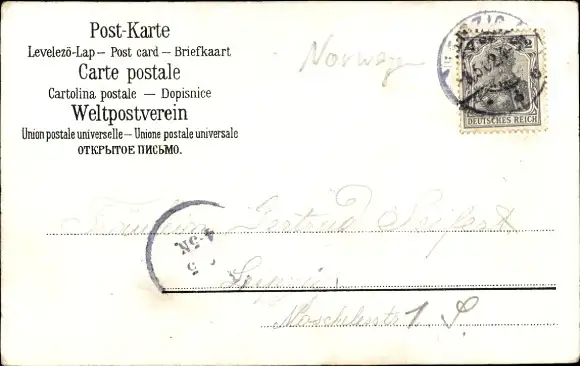 Post-Karte
Levelező-Lap — Post card — Briefkaart
Carte postale
Cartolina postale — Dopisnice
Weltpostverein
Union postale universelle — Unione postale universale
ОТКРЫТОЕ ПИСЬМО.
Norwegen
DEUTSCHES REICH
4-5N
Fräulein Gertrud Seifert
Leipzig
Moschelesstr 1.